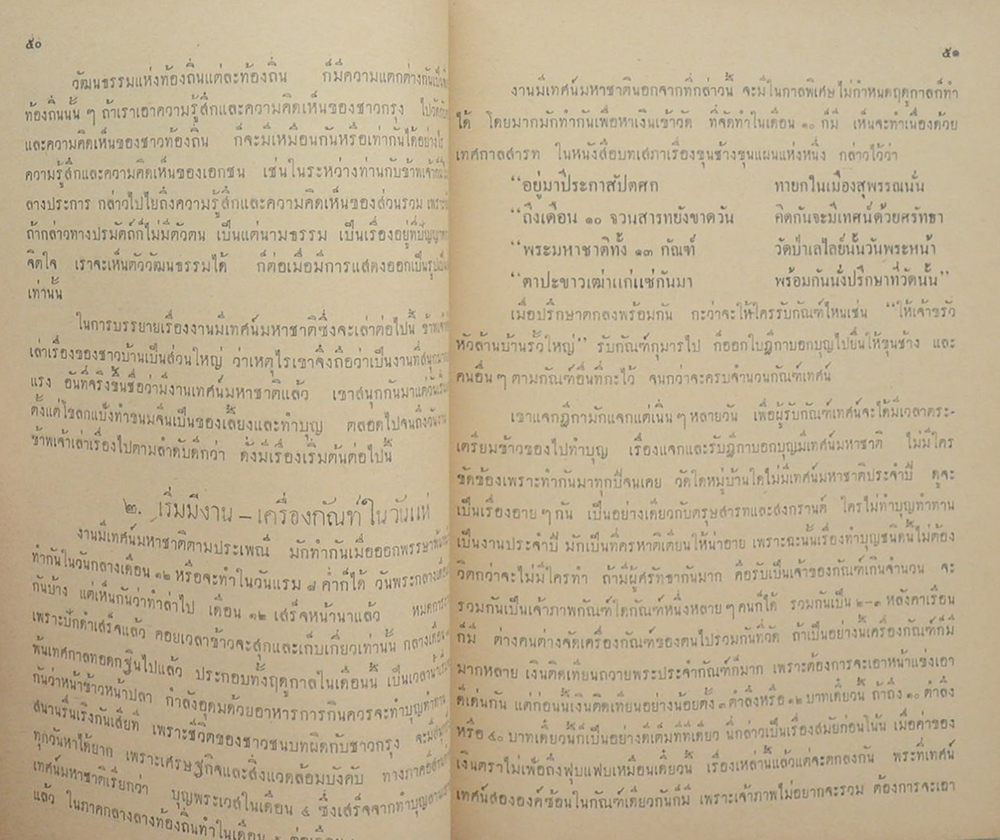 ๕๐
วัฒนธรรมแห่งท้องถิ่นแต่ละท้องถิ่น ก็มีความแตกต่างกันเป็น
ท้องถิ่นนั้น ๆ ถ้าเราเอาความรู้สึกและความคิดเห็นของชาวกรุง ไปวัด
และความคิดเห็นของชาวท้องถิ่น ก็จะมีเหมือนกันหรือเท่ากันได้อย่างไร
ความรู้สึกและความคิดเห็นของเอกชน เช่นในระหว่างท่านกับข้าพเจ้า
ลางประการ กล่าวไปไยถึงความรู้สึกและความคิดเห็นของส่วนรวม เพราะ
ถ้ากล่าวทางปรมัตถ์ก็ไม่มีตัวตน เป็นแต่นามธรรม เป็นเรื่องอยู่ที่
จิตใจ เราจะเห็นตัววัฒนธรรมได้ ก็ต่อเมื่อมีการแสดงออกเป็นรูป
เท่านั้น
ในการบรรยายเรื่องงานมีเทศน์มหาชาติซึ่งจะเล่าต่อไปนี้
เล่าเรื่องของชาวบ้านเป็นส่วนใหญ่ ว่าเหตุไรเขาจึงถือว่าเป็นงานที่สนุก
แรง อันที่จริงขึ้นชื่อว่ามีงานเทศน์มหาชาติแล้ว เขาสนุกกันมาแต่วัน
ตั้งแต่โขลกแป้งทำขนมจีนเป็นของเลี้ยงและทำบุญ ตลอดไปจนถึงวัน
ข้าพเจ้าเล่าเรื่องไปตามลำดับดีกว่า ดังมีเรื่องเริ่มต้นต่อไปนี้
๒. เริ่มมีงาน – เครื่องกัณฑ์ในวันแห่
งานมีเทศน์มหาชาติตามประเพณี มักทำกันเมื่อออกพรรษา
ทำกันในวันกลางเดือน ๑๒ หรือจะทำในวันแรม ๘ ค่ำก็ได้ วันพระกลาง
กันบ้าง แต่เห็นกันว่าทำล่าไป เดือน ๑๒ เสร็จหน้านาแล้ว หมด
เพราะปักดำเสร็จแล้ว คอยเวลาข้าวจะสุกและเก็บเกี่ยวเท่านั้น กลางเดือน
พ้นเทศกาลทอดกฐินไปแล้ว ประกอบทั้งฤดูกาลในเดือนนี้ เป็นเวลาน้ำ
กันว่าหน้าข้าวหน้าปลา กำลังอุดมด้วยอาหารการกินควรจะทำบุญทำทาน
สนานรื่นเริงกันเสียที เพราะชีวิตของชาวชนบทผิดกับชาวกรุง จะมี
ทุกวันหาได้ยาก เพราะเศรษฐกิจและสิ่งแวดล้อมบังคับ ทางภาคอีสาน
เทศน์มหาชาติเรียกว่า บุญพระเวสในเดือน ๔ ซึ่งเสร็จจากทำบุญลาน
แล้ว ในภาคกลางลางท้องถิ่นทำในเดือน
๕๑
งานมีเทศน์มหาชาตินอกจากที่กล่าวนี้ จะมีในกาลพิเศษไม่กำหนดฤดูกาลก็ทำ
ได้ โดยมากมักทำกันเพื่อหาเงินเข้าวัด ที่จัดทำในเดือน ๑๐ ก็มี เห็นจะทำเนื่องด้วย
เทศกาลสารท ในหนังสือบทเสภาเรื่องขุนช้างขุนแผนแห่งหนึ่ง กล่าวไว้ว่า
“อยู่มาปีระกาสัปตศก ทายกในเมืองสุพรรณนั่น
“ถึงเดือน ๑๐ จวนสารทยังขาดวัน คิดกันจะมีเทศน์ด้วยศรัทธา
“พระมหาชาติทั้ง ๑๓ กัณฑ์ วัดป่าเลไลยน์นั้นวันพระหน้า
“ตาปะขาวเฒ่าแก่แซ่กันมา พร้อมกันนั่งปรึกษาที่วัดนั้น”
เมื่อปรึกษาตกลงพร้อมกัน กะว่าจะให้ใครรับกัณฑ์ไหนเช่น “ให้เจ้าขรัว
หัวล้านบ้านรั้วใหญ่” รับกัณฑ์กุมารไป ก็ออกใบฎีกาบอกบุญไปยื่นให้ขุนช้าง และ
คนอื่น ๆ ตามกัณฑ์อื่นที่กะไว้ จนกว่าจะครบจำนวนกัณฑ์เทศน์
เขาแจกฎีกามักแจกแต่เนิ่น ๆ หลายวัน เพื่อผู้รับกัณฑ์เทศน์จะได้มีเวลาตระ-
เตรียมข้าวของไปทำบุญ เรื่องแจกและรับฎีกาบอกบุญมีเทศน์มหาชาติ ไม่มีใคร
ขัดข้องเพราะทำกันมาทุกปีจนเคย วัดใดหมู่บ้านใดไม่มีเทศน์มหาชาติประจำปี ดูจะ
เป็นเรื่องอาย ๆ กัน เป็นอย่างเดียวกับตรุษสารทและสงกรานต์ ใครไม่ทำบุญทำทาน
เป็นงานประจำปี มักเป็นที่ครหาติเตียนให้น่าอาย เพราะฉะนั้นเรื่องทำบุญชนิดนี้ไม่ต้อง
วิตกว่าจะไม่มีใครทำ ถ้ามีผู้ศรัทธากันมาก คือรับเป็นเจ้าของกัณฑ์เกินจำนวน จะ
รวมกันเป็นเจ้าภาพกัณฑ์ใดกัณฑ์หนึ่งหลายๆ คนก็ได้ รวมกันเป็น ๒–๓ หลังคาเรือน
ก็มี ต่างคนต่างจัดเครื่องกัณฑ์ของตนไปรวมกันที่วัด ถ้าเป็นอย่างนี้เครื่องกัณฑ์ก็มี
มากหลาย เงินติดเทียนถวายพระประจำกัณฑ์ก็มาก เพราะต้องการจะเอาหน้าแข่งเอา
ดีเด่นกัน แต่ก่อนนี้เงินติดเทียนอย่างน้อยตั้ง ๓ ตำลึงหรือ ๑๒ บาทเดี๋ยวนี้ ถ้าถึง ๑๐ ตำลึง
หรือ ๔๐ บาทเดี๋ยวนี้ก็เป็นอย่างดีเต็มทีทีเดียว นี่กล่าวเป็นเรื่องสมัยก่อนโน้น เมื่อค่าของ
เงินตราไม่เฟ้อถึงฟุบแฟบเหมือนเดี๋ยวนี้ เรื่องเหล่านี้แล้วแต่จะตกลงกัน พระที่เทศน์
เทศน์สององค์ซ้อนในกัณฑ์เดียวกันก็มี เพราะเจ้าภาพไม่อยากจะรวม ต้องการจะเอา